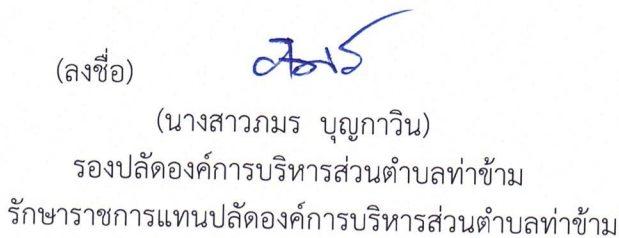 (ลงชื่อ)
(นางสาวภมร บุญกาวิน)
รองปลัดองค์การบริหารส่วนตำบลท่าข้าม
รักษาราชการแทนปลัดองค์การบริหารส่วนตำบลท่าข้าม